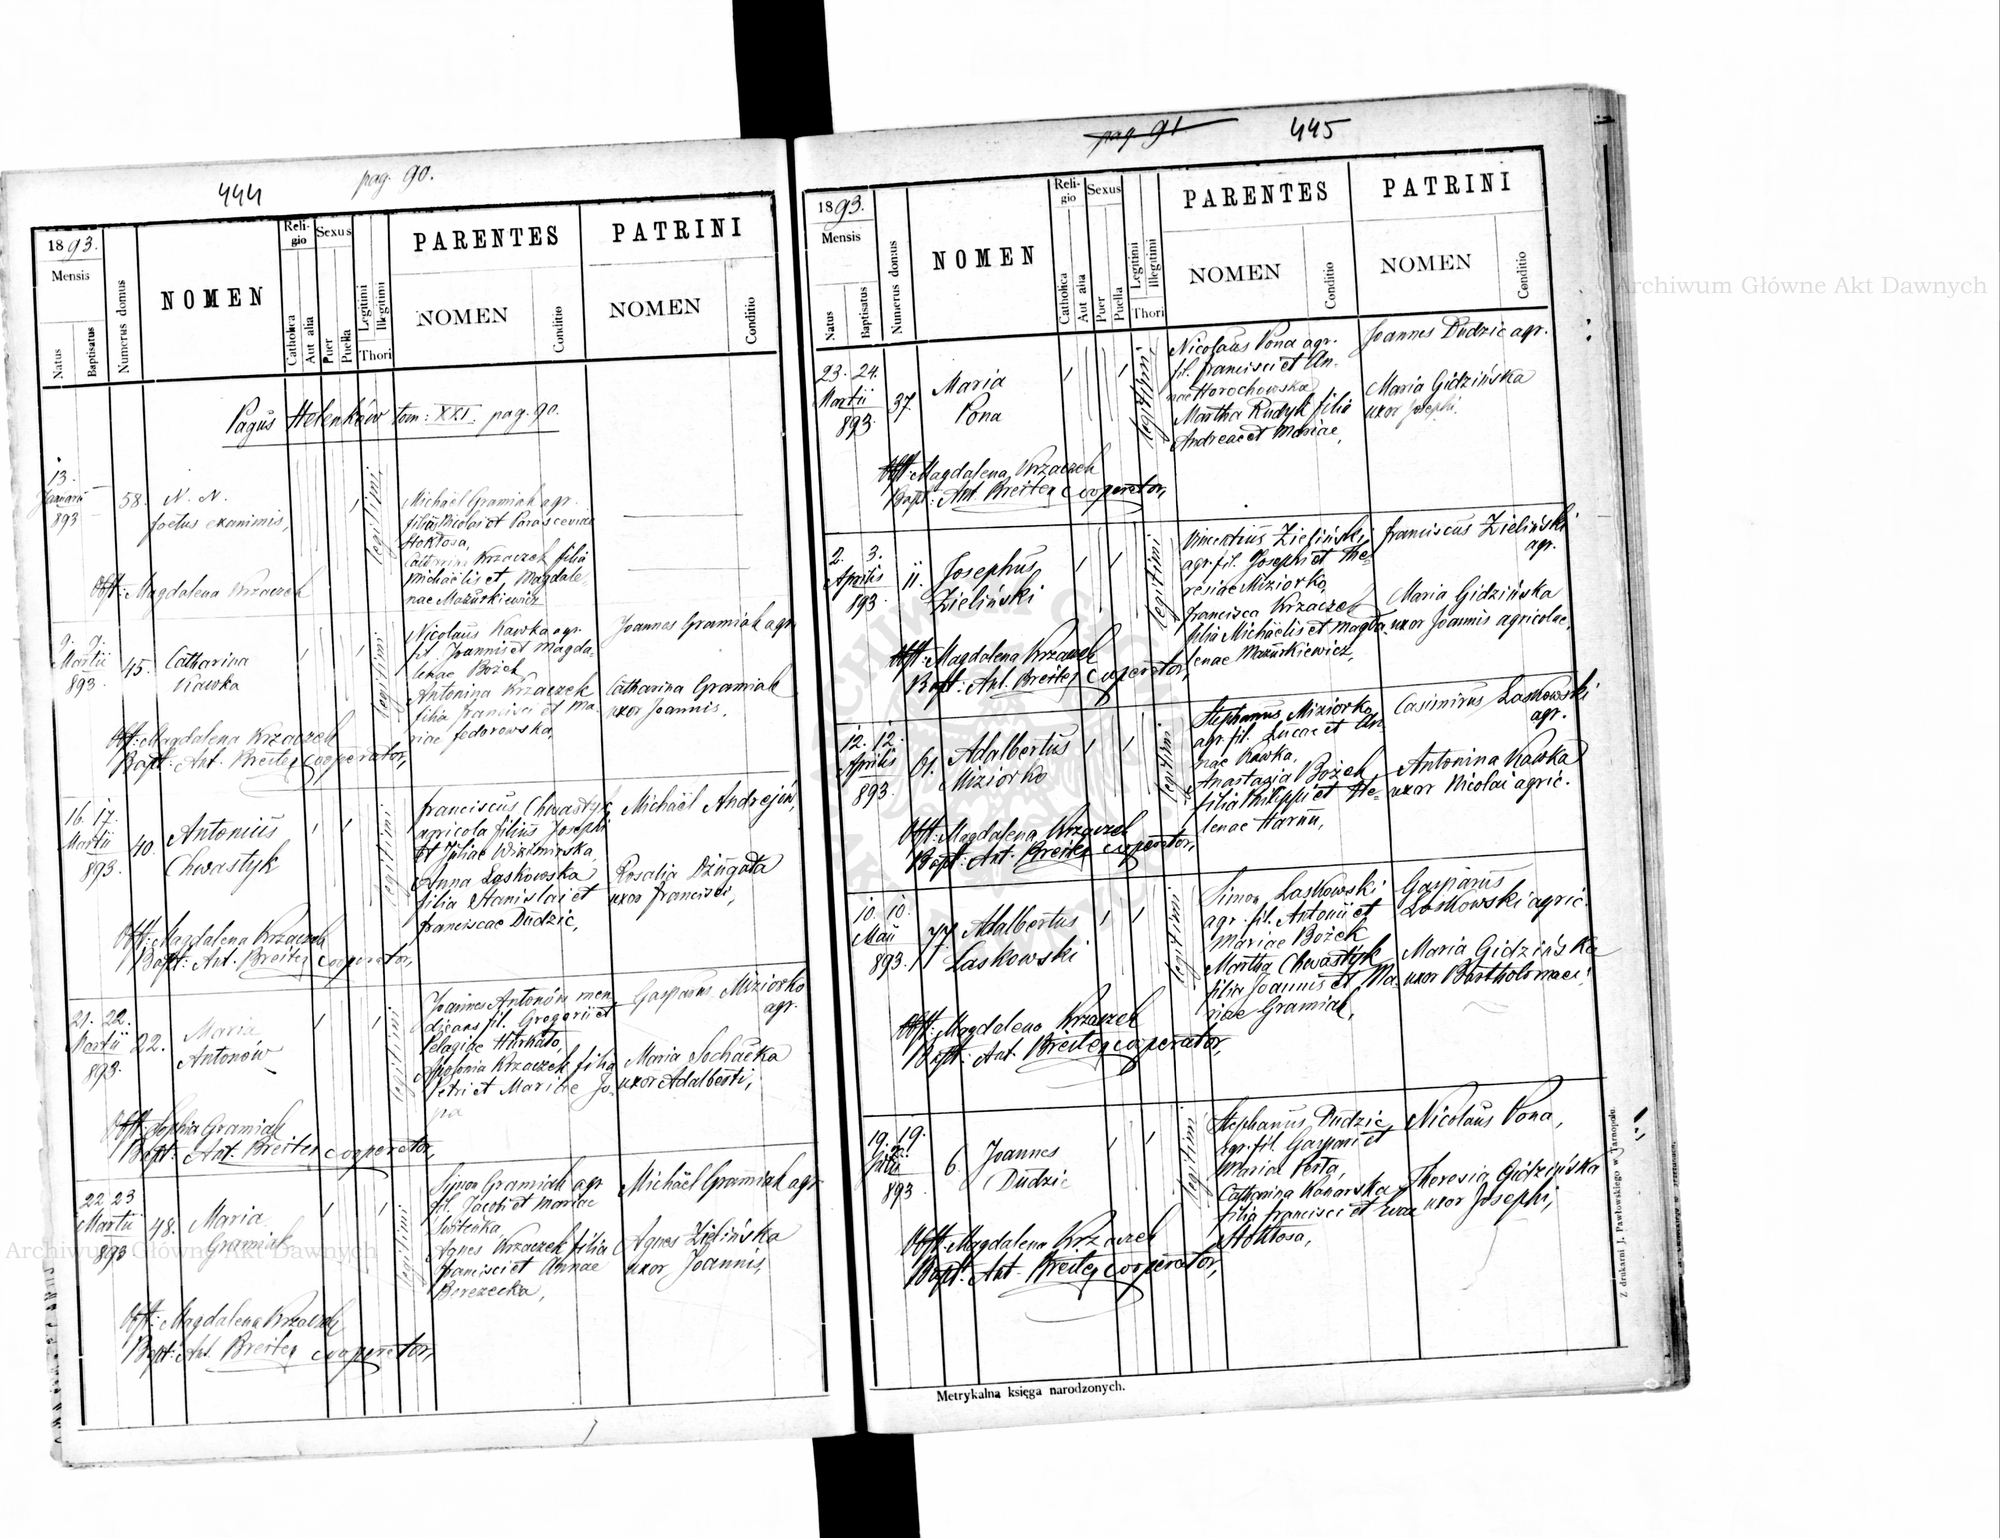 444
pag. 90.
1893.
Mensis
Natus
Baptisatus
Numerus domus
NOMEN
Religio
Catholica
Aut alia
Sexus
Puer
Puella
Legitimi
Illegitimi
Thori
PARENTES
NOMEN
Conditio
PATRINI
NOMEN
Conditio
Pagus Helenków tom: XXI. pag. 90.
13.
Januarii
893
58.
N. N.
foetus exanimis,
legitimi
Michaël Gramiak agr.
filius Nicolai et Parascevia
Stoktosa,
Catharina Krzaczek filia
Michaëlis et Magdale
nae Mazurkiewicz
Obst: Magdalena Krzaczek
9. 9.
Martii
893
45.
Catharina
Kawka
legitimi
Nicolaus Kawka agr.
fil. Joannis et Magda-
lenae Bożek
Antonina Krzaczek
filia Francisci et Ma-
riae Fedorowska,
Joannes Gramiak agr
Catharina Gramiak
uxor Joannis,
Obst: Magdalena Krzaczek
Bapt: Ant. Breiter cooperator,
16. 17.
Martii
893.
40.
Antonius
Chwastyk
legitimi
Franciscus Chwastyk
agricola filius Josephi
et Juliae
Anna Laskowska
filia Stanislai et
Franciscae Dudzic,
Michaël Andrejów,
Rosalia Dżugała
uxor Francisci,
Obst: Magdalena Krzaczek
Bapt: Ant. Breiter cooperator,
21. 22.
Martii
893.
22.
Maria
Antonów
legitimi
Joannes Antonów men
dicans fil. Gregorii et
Pelagiae
Apolonia Krzaczek filia
Petri et Mariae Jo-
pa
Gasparus Miziorko
agr.
Maria Sochacka
uxor Adalberti,
Obst: Sophia Gramiak
Bapt: Ant. Breiter cooperator,
22 23
Martii
893
48.
Maria
Gramiak
legitimi
Simon Gramiak agr
fil. Jacobi et Mariae
Agnes Krzaczek filia
Francisci et Annae
Berezecka,
Michaël Gramiak agr
Agnes Zielińska
uxor Joannis,
Obst: Magdalena Krzaczek
Bapt: Ant. Breiter cooperator,
pag 91
445
1893.
Mensis
Natus
Baptisatus
Numerus domus
NOMEN
Religio
Catholica
Aut alia
Sexus
Puer
Puella
Legitimi
Illegitimi
Thori
PARENTES
NOMEN
Conditio
PATRINI
NOMEN
Conditio
23. 24.
Martii
893.
37.
Maria
Pona
legitimi
Nicolaus Pona agr.
fil. Francisci et An.
nae Horochowska
Martha Rudyk filia
Andreae et Mariae,
Joannes Dudzic agr.
Maria Gidzińska
uxor Josephi.
Obst: Magdalena Krzaczek
Bapt: Ant. Breiter cooperator,
2. 3.
Aprilis
893
11.
Josephus
Zieliński
legitimi
Vincentius Zieliński
agr. fil. Josephi et The-
resiae Miziorko,
Francisca Krzaczek
filia Michaëlis et Magda-
lenae Mazurkiewicz,
Franciscus Zieliński
agr.
Maria Gidzińska
uxor Joannis agricolae,
Obst: Magdalena Krzaczek
Bapt: Ant. Breiter cooperator,
12. 12.
Aprilis
893.
61.
Adalbertus
Miziorko
legitimi
Stephanus Miziorko
agr. fil. Lucae et An
nae Kawka,
Anastazia Bożek
filia Philippi et He-
lenae Harnu,
Casimirus Laskowski
agr.
Antonina Kawka
uxor Nicolai agric.
Obst: Magdalena Krzaczek
Bapt: Ant. Breiter cooperator,
10. 10.
Maii
893.
77
Adalbertus
Laskowski
legitimi
Simon Laskowski
agr. fil. Antonii et
Mariae Bożek
Martha Chwastyk
filia Joannis et Ma-
riae Gramiak,
Gasparus
Laskowski agric.
Maria Gidzińska
uxor Bartholomaei,
Obst: Magdalena Krzaczek
Bapt: Ant. Breiter cooperator,
19. 19.
893
6.
Joannes
Dudzic
legitimi
Stephanus Dudzic
agr. fil. Gaspari et
Mariae Perta,
Catharina Konarska
filia Francisci et Evae
Stoktosa,
Nicolaus Pona,
Theresia Gidzińska
uxor Josephi,
Obst: Magdalena Krzaczek
Bapt: Ant. Breiter cooperator,
Metrykalna księga narodzonych.
Z drukarni J. Pawłowskiego w Tarnopolu.
Archiwum Główne Akt Dawnych
Archiwum Główne Akt Dawnych